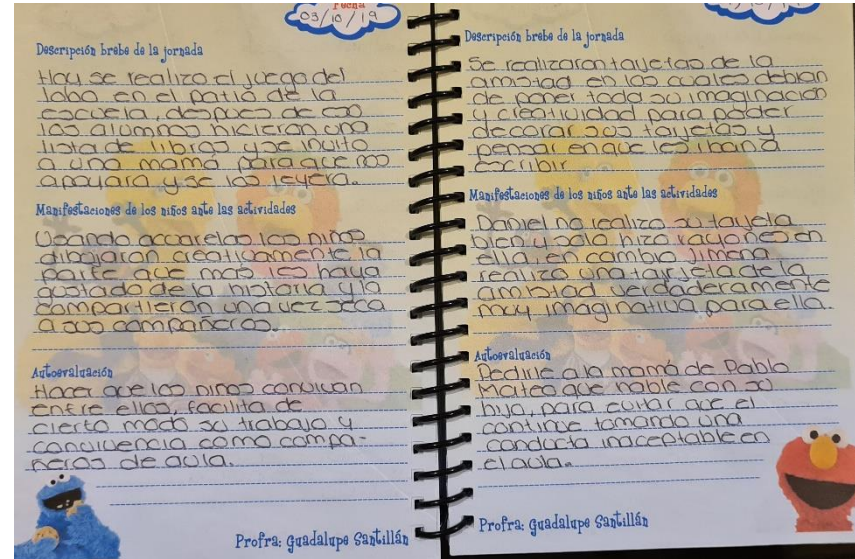 Fecha
03/10/19
Descripción brebe de la jornada
Hoy se realizo el juego del
lobo en el patio de la
escuela, despues de eso
los alumnos hicieron una
lista de libros y se invito
a una mamá para que nos
apoyara y se los leyera.
Manifestaciones de los niños ante las actividades
Usando acuarelas los niños
dibujaron creativamente la
parte que mas les haya
gustado de la historia y la
compartieron una vez seca
a sus compañeros.
Autoevaluación
Hacer que los niños convivan
entre ellos, facilita de
cierto modo su trabajo y
convivencia como compa-
ñeros de aula.
Profra: Guadalupe Santillán
Descripción brebe de la jornada
Se realizaron tarjetas de la
amistad en los cuales debian
de poner toda su imaginación
y creatividad para poder
decorar sus tarjetas y
pensar en que les iban a
escribir.
Manifestaciones de los niños ante las actividades
Daniel no realizo su tarjeta
bien y solo hizo rayones en
ella, en cambio Jimena
realizo una tarjeta de la
amistad verdaderamente
muy imaginativa para ella.
Autoevaluación
Pedirle a la mamá de Pablo
Mateo que hable con su
hijo, para evitar que el
continue tomando una
conducta inaceptable en
el aula.
Profra: Guadalupe Santillán